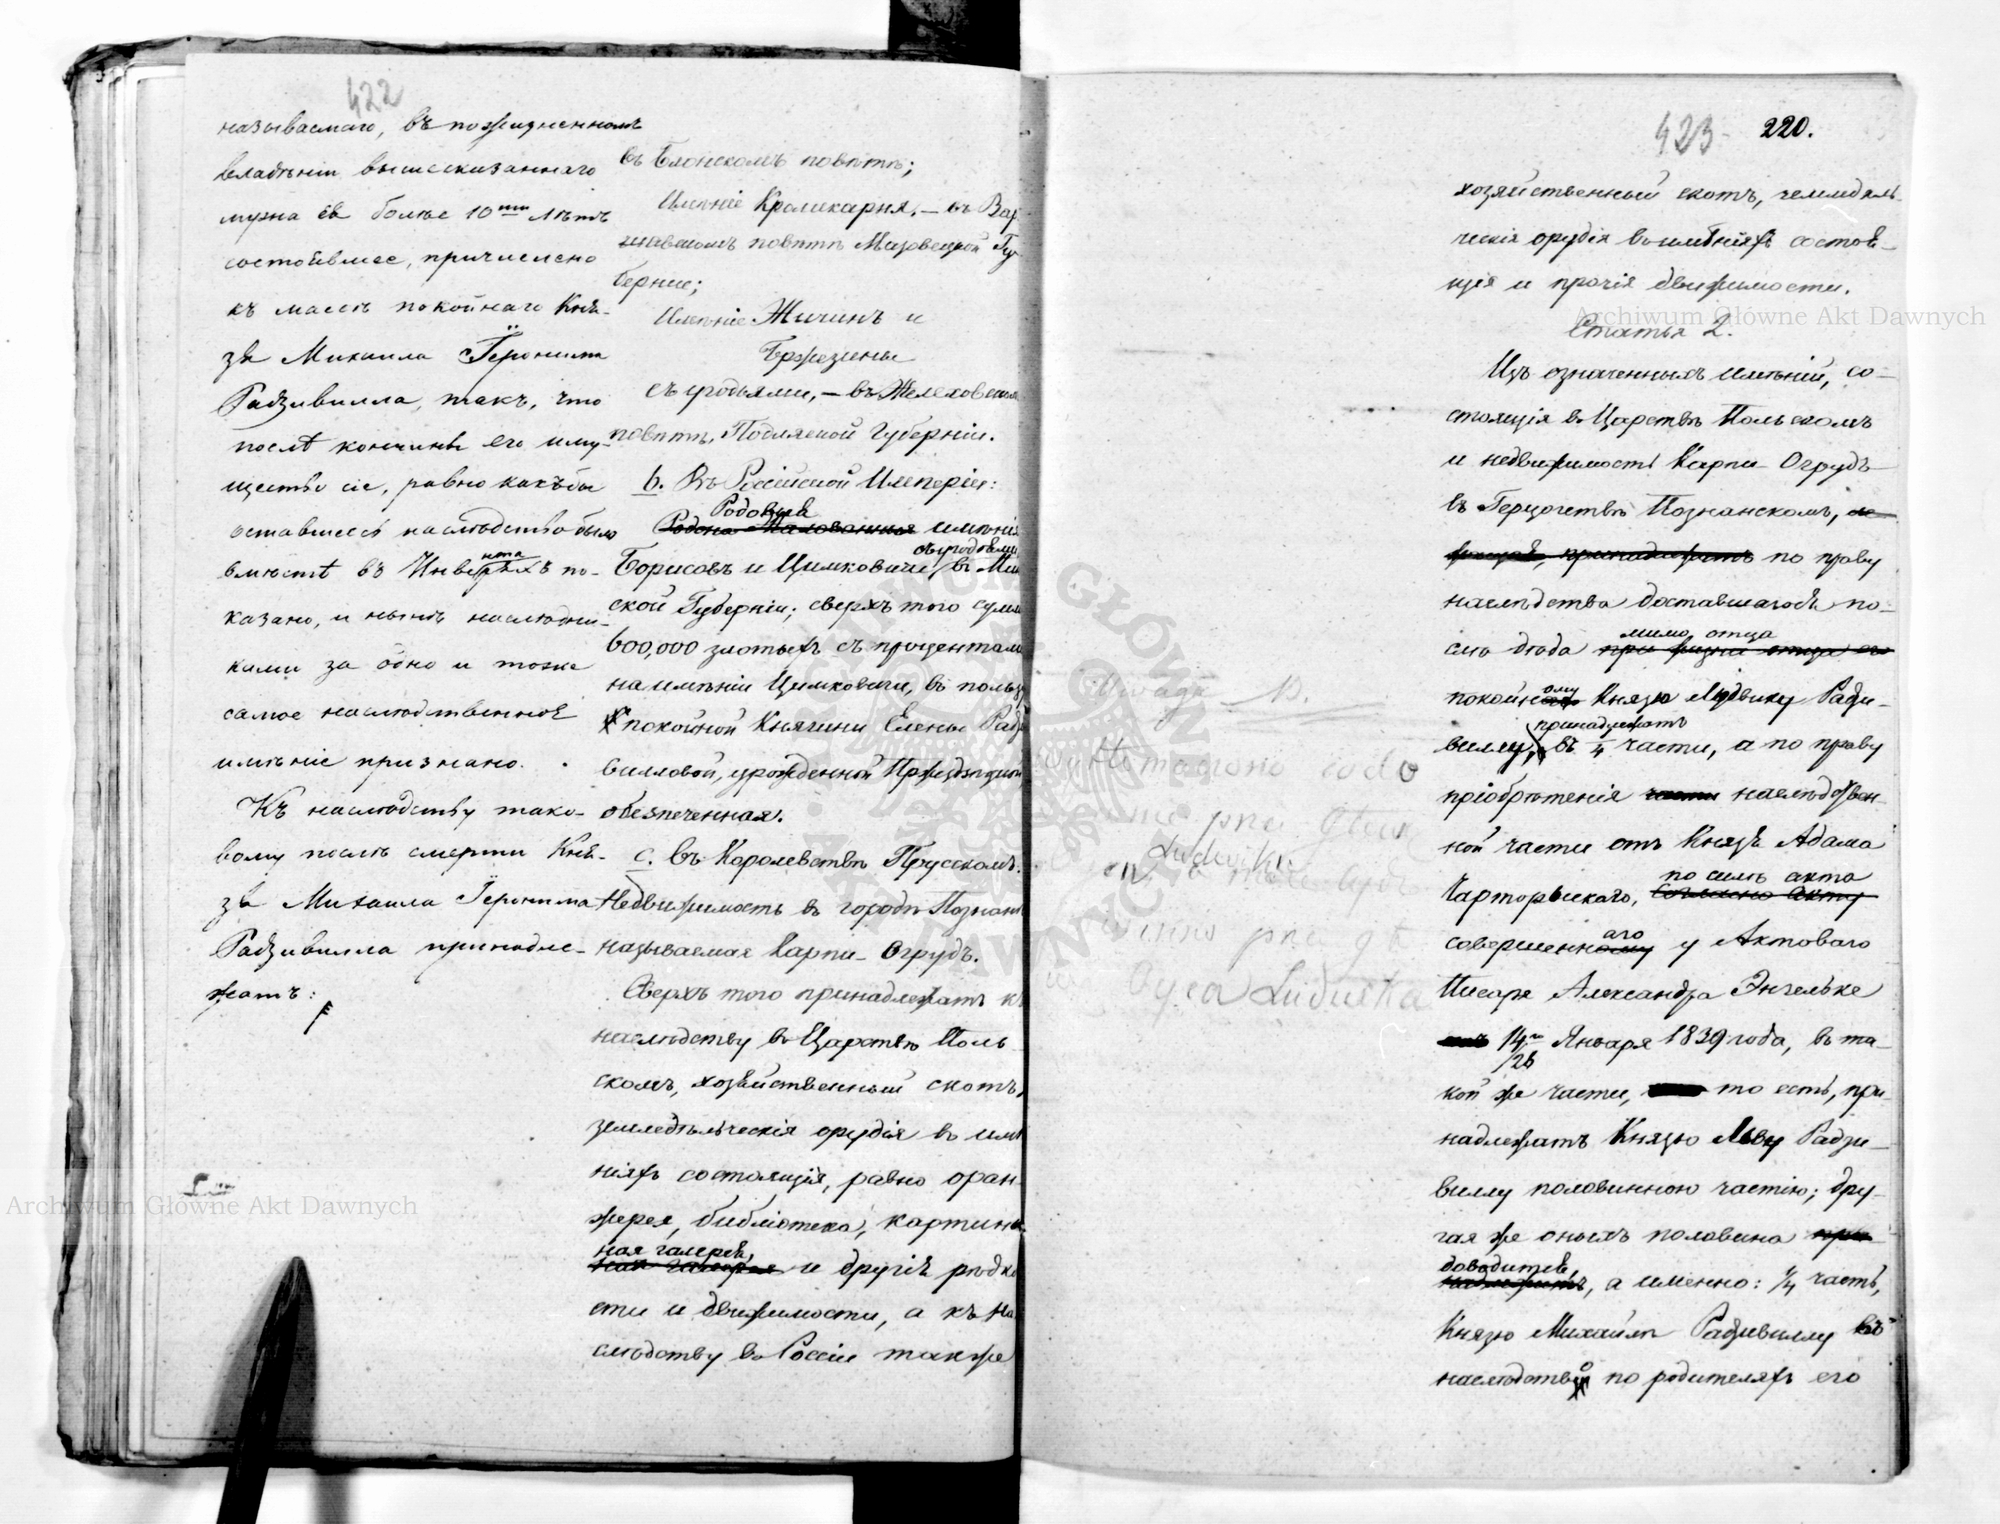 422
называемаго, въ пожизненномъ
владѣніи вышесказаннаго
мужа ея болѣе 10ти лѣтъ
состоявшее, причислено
къ массѣ покойнаго Кня-
зя Михаила Іеронима
Радзивилла, такъ, что
послѣ кончины его иму-
щество сіе, равно какъ бы
оставшееся наслѣдство было
вмѣстѣ въ Инвента по-
казано, и нынѣ наслѣдни-
ками за одно и тоже
самое наслѣдственное
имѣніе признано.
Къ наслѣдству тако-
вому послѣ смерти Кня-
зя Михаила Іеронима
Радзивилла принадле-
жатъ:
въ Блонскомъ повѣтѣ;
Имѣніе Кроликарня, — въ Вар
шавскомъ повѣтѣ Мазовецкой Гу-
берніи;
Имѣніе Жичинъ и
Бржезины
съ угодьями, — въ Желеховском
повѣтѣ, Подляской Губерніи.
b. Въ Россійской Имперіи:
Родовыя
имѣнія
съ угодьями
Борисовъ и Цимковичи, въ Мин
ской Губерніи; сверхъ того сумма
600,000 злотыхъ съ процентами
на имѣніи Цимковичи, въ пользу
покойной Княгини Елены Радзи
вилловой, урожденной Пржездзецкой
обезпеченная.
c. Въ Королевствѣ Прусскомъ.
Недвижимость въ городѣ Познани
называемая Карпи-Огрудъ.
Сверхъ того принадлежатъ къ
наслѣдству въ Царствѣ Поль
скомъ, хозяйственный скотъ,
земледѣльческія орудія въ имѣ
ніяхъ состоящія, равно оран-
жерея, библіотека, картин
ная галерея,
и другія рѣдко
сти и движимости, а къ на
слѣдству въ Россіи также
423 220.
хозяйственный скотъ, земледѣль-
ческія орудія въ имѣніяхъ состоя-
щія и прочія движимости.
Статья 2.
Изъ означенныхъ имѣній, со-
стоящія въ Царствѣ Польскомъ
и недвижимость Карпи-Огрудъ
въ Герцогствѣ Познанскомъ,
принадлежатъ по праву
наслѣдства доставшагося по-
слѣ дѣда
мимо отца
при жизни отца его
покойному Князю Людвику Радзи-
принадлежатъ
виллу, въ ¼ части, а по праву
пріобрѣтенія части наслѣдствен-
ной части отъ Князя Адама
по силѣ акта
Чарторыскаго, согласно акту
совершеннаго у Актоваго
Писаря Александра Энгельке
14/26 Января 1839 года, въ та-
кой же части, то есть, при-
надлежатъ Князю Льву Радзи-
виллу половинною частію; дру-
гая же оныхъ половина при
доводится,
надлежитъ, а именно: ¼ часть,
Князю Михаилу Радзивиллу въ
наслѣдство по родителяхъ его
Ludwika
Ojca Ludwika
Archiwum Główne Akt Dawnych
Archiwum Główne Akt Dawnych
ARCHIWUM GŁÓWNE AKT DAWNYCH